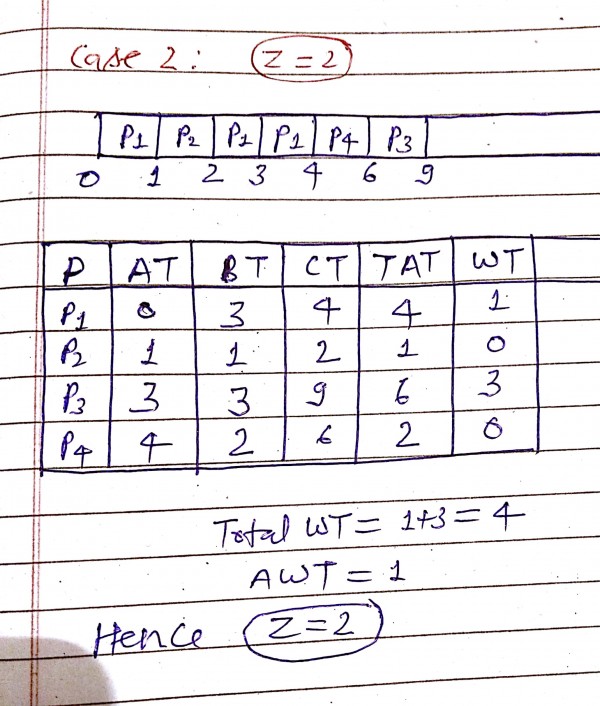 Case 2: Z=2
P1 P2 P1 P1 P4 P3
0 1 2 3 4 6 9
P AT BT CT TAT WT
P1 0 3 4 4 1
P2 1 1 2 1 0
P3 3 3 9 6 3
P4 4 2 6 2 0
Total WT = 1+3 = 4
AWT = 1
Hence Z=2